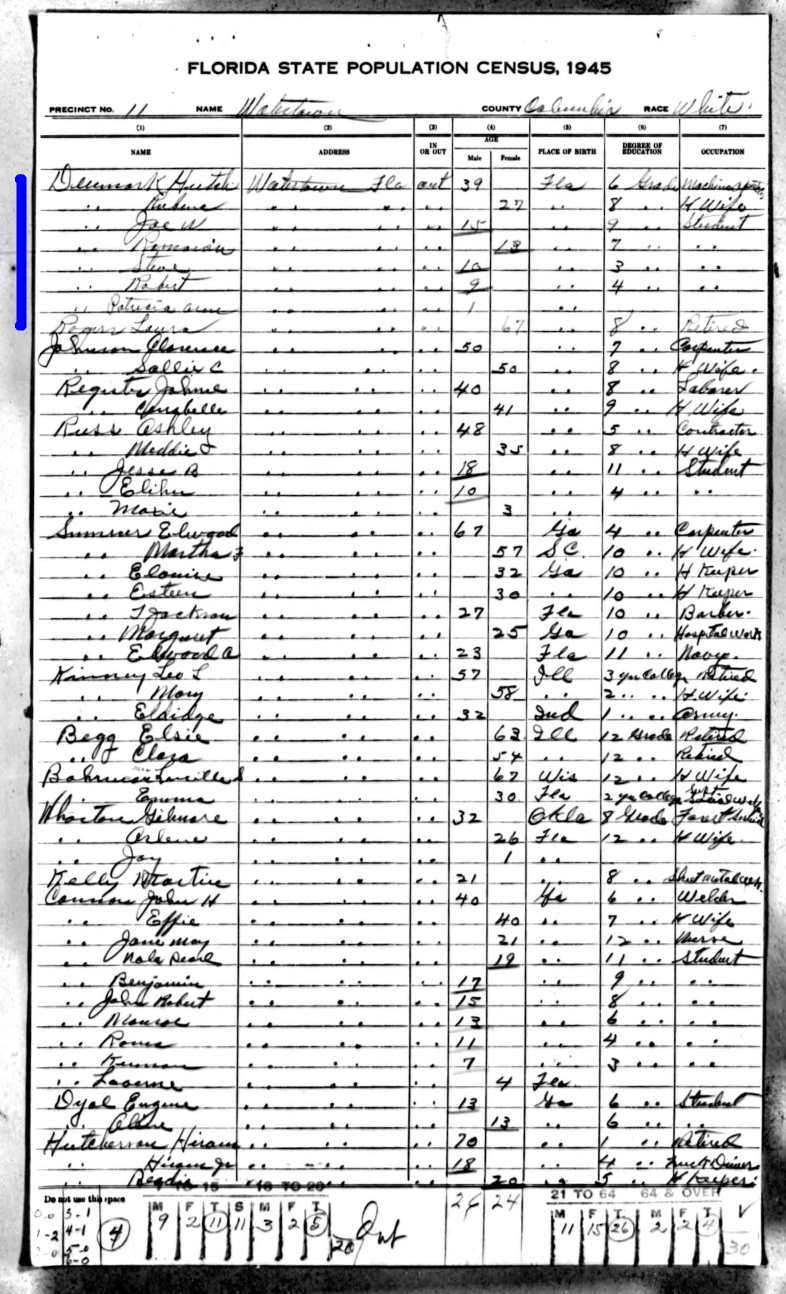 FLORIDA STATE POPULATION CENSUS, 1945
PRECINCT NO. 11 NAME Watertown COUNTY Columbia RACE White
(1) (2) (3) (4) (5) (6) (7)
NAME ADDRESS IN OR OUT AGE Male Female PLACE OF BIRTH DEGREE OF EDUCATION OCCUPATION
Denmark Hutch Watertown Fla out 39 Fla 6 Grade
" " " " " 27 " 8 " H Wife
" Joe W " " " 15 " 9 " Student
" " " " " 13 " 7 " "
" Steve " " " 10 " 3 " "
" Robert " " " 9 " 4 " "
" Patricia ann " " " 1 "
Rogers Laura " " " 67 " 8 " Retired
Johnson Clarence " " " 50 " 7 " Carpenter
" Sallie C " " " 50 " 8 " H Wife
Register Johnie " " " 40 " 8 " Laborer
" " " " 41 " 9 " H Wife
Russ Ashley " " " 48 " 5 " Contractor
" " " " 35 " 8 " H Wife
" Jesse B " " " 18 " 11 " Student
" Elihu " " " 10 " 4 " "
" Maxie " " " 3 "
Summer Elwood " " " 67 Ga 4 " Carpenter
" Martha " " " 57 S.C. 10 " H Wife
" Elouise " " " 32 Ga 10 " H Keeper
" Esteen " " " 30 " 10 " H Keeper
" T Jackson " " " 27 Fla 10 " Barber
" Margaret " " " 25 Ga 10 " Hospital Work
" Elwood A " " " 23 Fla 11 " Navy
Kinney Leo L " " " 57 Ill 3 yrs College Retired
" Mary " " " 58 " 2 " " H Wife
" Eldidge " " " 32 Ind 1 " " Army
Begg Elsie " " " 63 Ill 12 Grade Retired
" Clara " " " 54 " 12 " Retired
" " " 67 Wis 12 " H Wife
" Emma " " " 30 Fla 2 yrs College
Wharton Gilmore " " " 32 Okla 8 Grade Forest
" Arlene " " " 26 Fla 12 " H Wife
" Joy " " " 1 "
Kelly Martin " " " 21 " 8 " Sheet Metal
Connor John H " " " 40 Ga 6 " Welder
" Effie " " " 40 " 7 " H Wife
" Jane May " " " 21 " 12 " Nurse
" Nola Pearl " " " 19 " 11 " Student
" Benjamin " " " 17 " 9 " "
" John Robert " " " 15 " 8 " "
" Monroe " " " 13 " 6 " "
" " " " 11 " 4 " "
" " " " 7 " 3 " "
" Laverne " " " 4 Fla
Dyal Eugene " " " 13 Ga 6 " Student
" " " " 13 " 6 " "
Hutcherson Hiram " " " 70 " 1 " Retired
" Hiram Jr " " " 18 " 4 " Truck Driver
" " " " 20 " 5 " H Keeper
Do not use this space
26 24
21 TO 64 64 & OVER
M F T S M F T
9 2 11 11 3 2 5
20 Out
M F T M F T
11 15 26 2 2 4
30
4